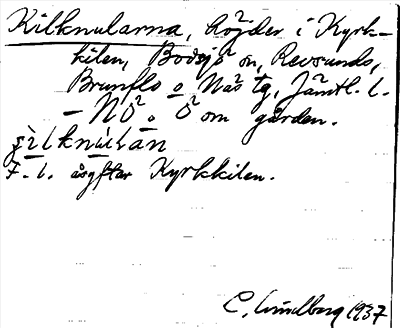 Kilknularna, höjder i Kyrk-
kilen, Bodsjö sn, Revsunds,
Brunflo o Näs tg, Jämtl. l.
– NÖ o Ö om gården.
F. l. åsyftar Kyrkkilen.
C. Lundberg 1937